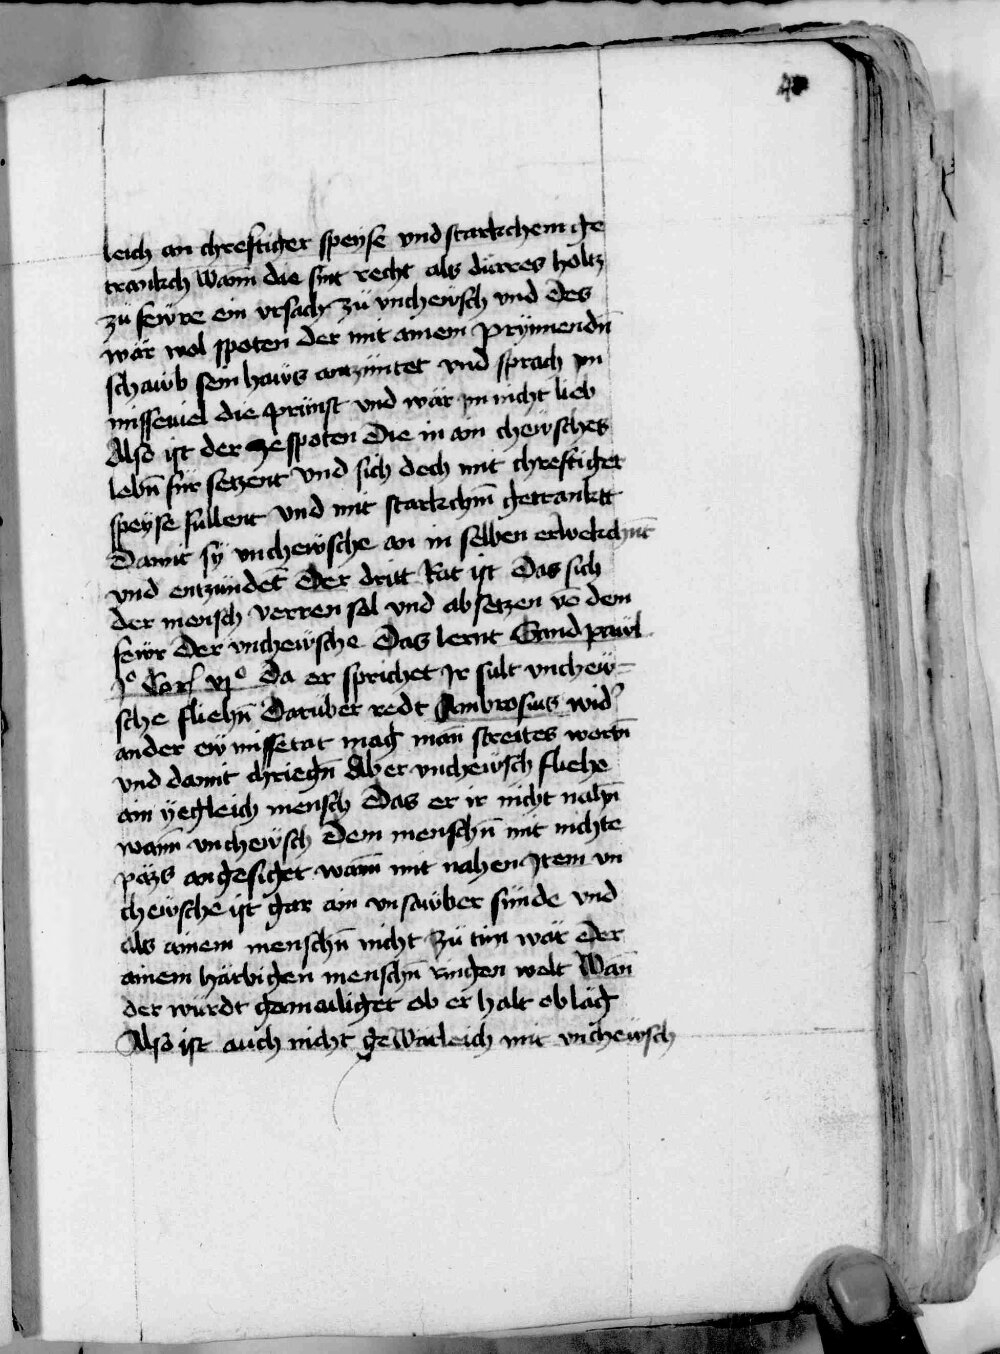 leich an chreftiger speyse vnd starkchem ge
trankch Wann die sint recht als dürres holtz
zü fewre ein vrsach zü vnchewsch vnd des
wär wol spoten der mit ainem prynnendn̄
schawb sein haws antzüntet vnd sprach ym
misseuiel die prünst vnd wär ym nicht lieb
Also ist der ze spoten Die in ain chewsches
lebn̄ für setzent vnd sich doch mit chreftiger
speyse füllent vnd mit starkchm̄ getrankt
Damit sy vnchewsche an in selben erwekchnt̄
vnd entzündet̄ Der dritt Rat ist Das sich
der mensch verren sol vnd absetzen vō dem
fewr Der vnchewsche Das lernt Sand pawl
jº Corˀ vjº Da er sprichet Ir sült vnchew-
sche fliehn̄ Darüber redt Ambrosius wid᾽
ander ew missetat mag man̄ streites wartn̄
vnd damit chriegn̄ Aber vnchewsch fliehe
ain yegleich mensch Das er ir nicht nahn̄
wann̄ vnchewsch Dem menschn̄ mit nichte
päzs angesiget wann̄ mit nahen Item vn
chewsche ist gar ain vnsawber sünde vnd
als ainem menschn̄ nicht Zü tün wär Der
ainem härbigen menschn̄ ringen wolt Wan̄
der würdt gemailiget ob er halt oblag
Also ist auch nicht geWärleich mit vnchewsch